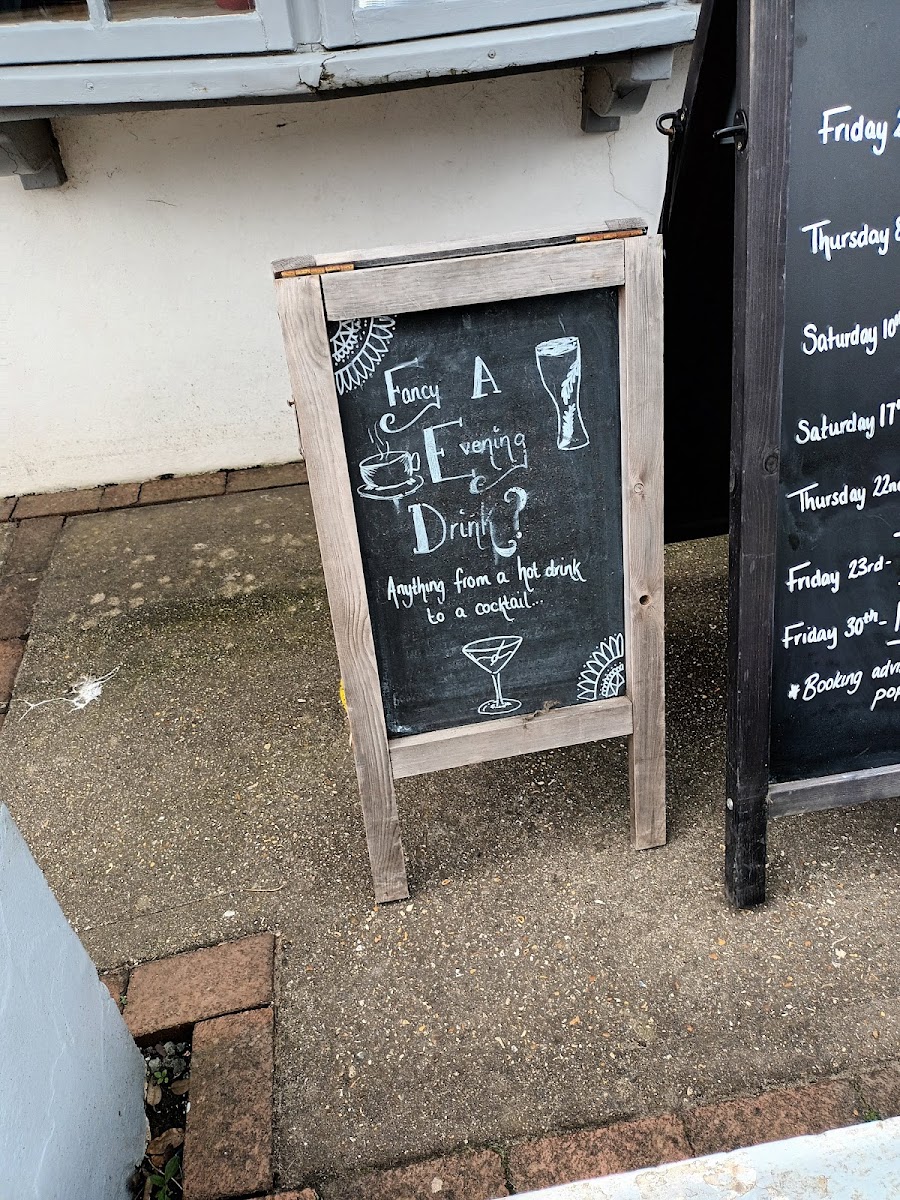 Fancy A
Evening
Drink?
Anything from a hot drink
to a cocktail...
Friday
Thursday
Saturday 10th
Saturday 17th
Thursday 22nd
Friday 23rd-
Friday 30th-
*Booking